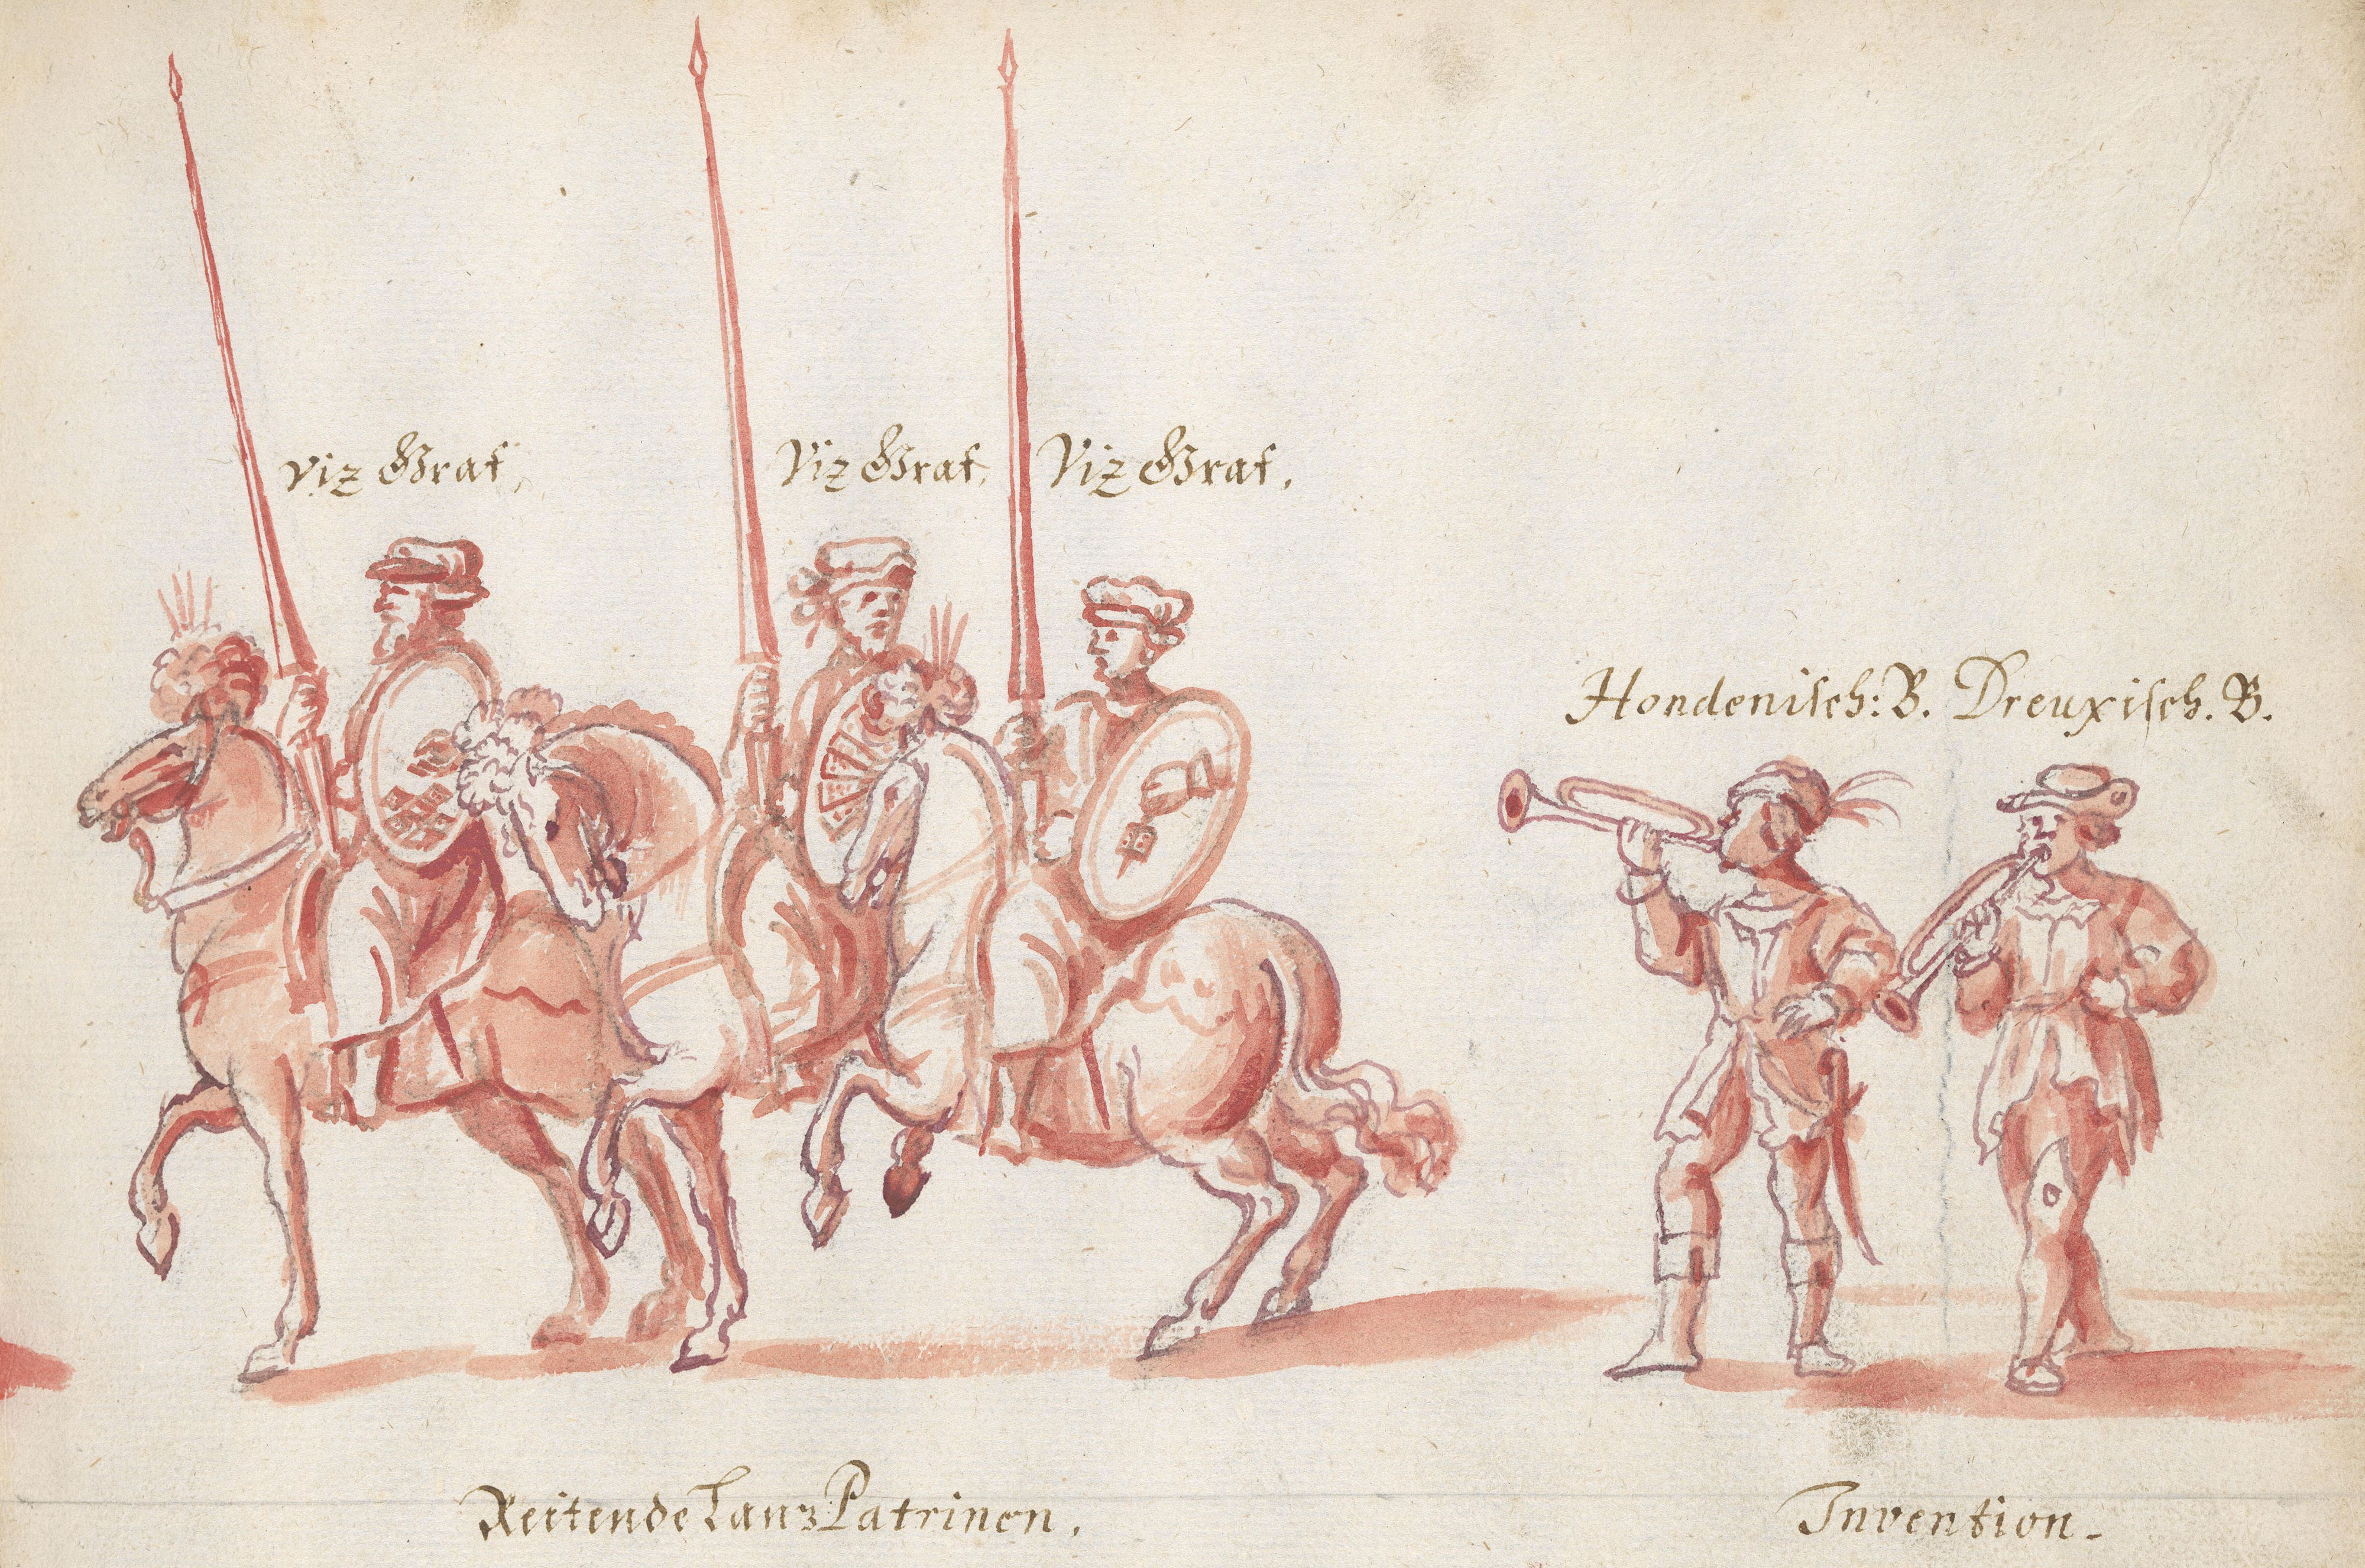 Viz Graf,
Viz Graf.
Viz Graf.
Hondenisch: B.
Dreuxisch. B.
Reitende Lanz Patrinen.
Invention.